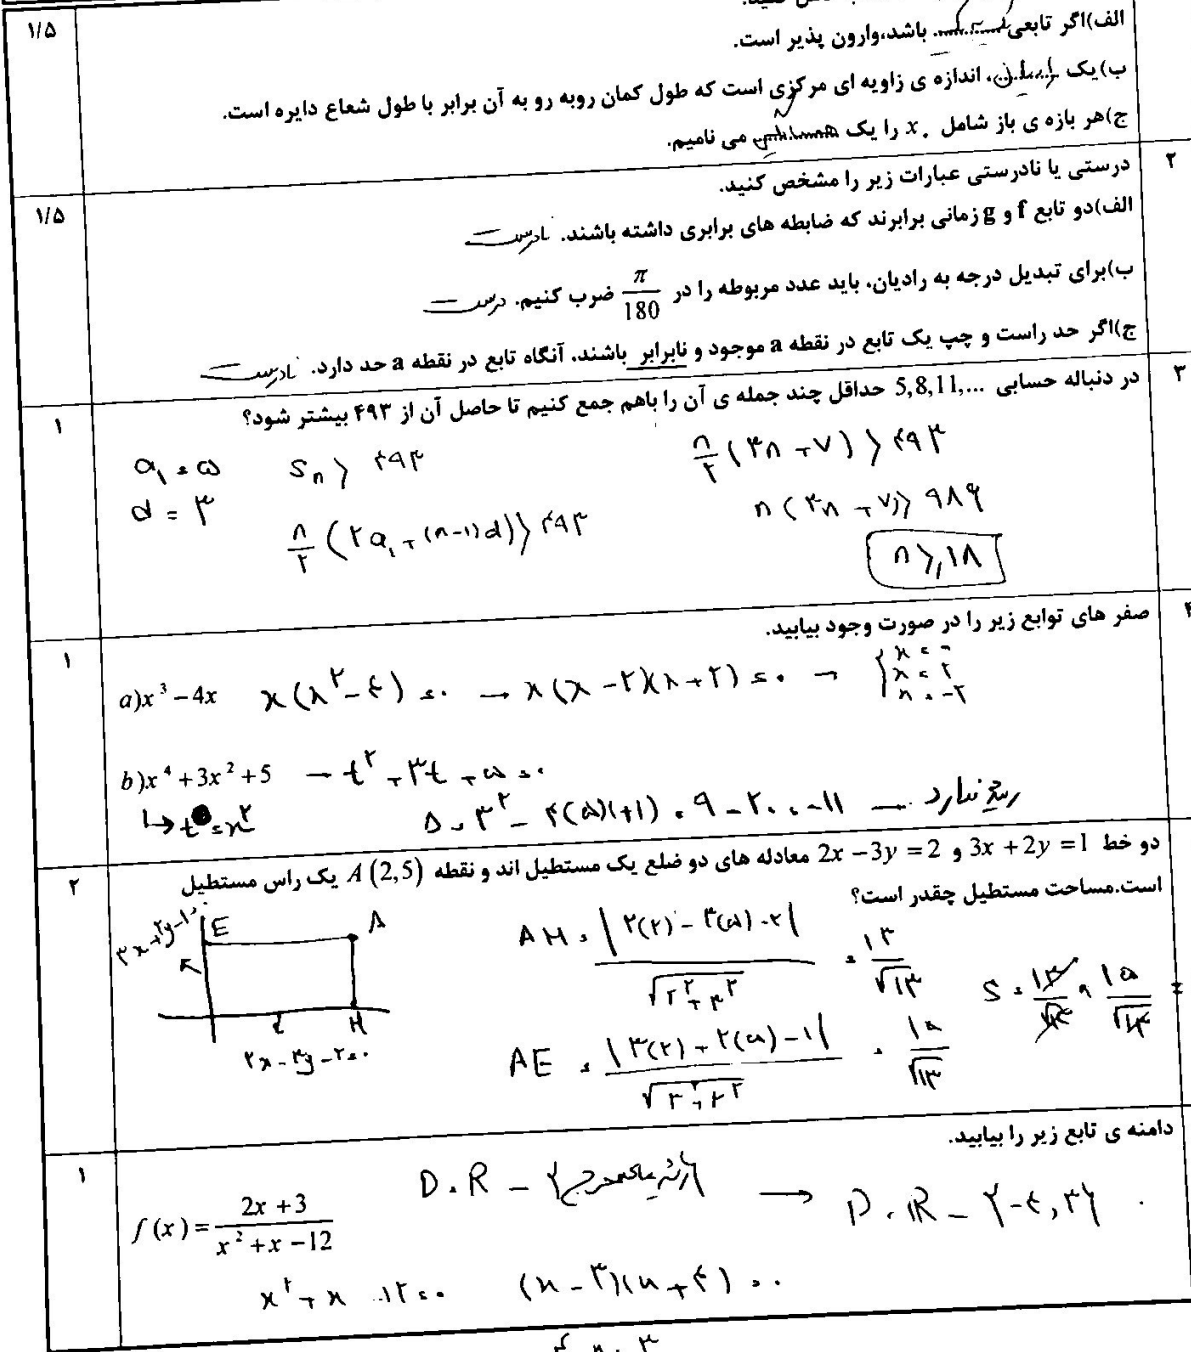 ۱/۵
الف)اگر تابعی ........ باشد،وارون پذیر است.
ب)یک رادیان، اندازه ی زاویه ای مرکزی است که طول کمان روبه رو به آن برابر با طول شعاع دایره است.
ج)هر بازه ی باز شامل x₀ را یک همسایگی می نامیم.
۲
درستی یا نادرستی عبارات زیر را مشخص کنید.
۱/۵
الف)دو تابع f و g زمانی برابرند که ضابطه های برابری داشته باشند. نادرست
ب)برای تبدیل درجه به رادیان، باید عدد مربوطه را در π/180 ضرب کنیم. درست
ج)اگر حد راست و چپ یک تابع در نقطه a موجود و نابرابر باشند، آنگاه تابع در نقطه a حد دارد. نادرست
۳
در دنباله حسابی 5,8,11,... حداقل چند جمله ی آن را باهم جمع کنیم تا حاصل آن از ۴۹۳ بیشتر شود؟
۱
a₁ = ۵
d = ۳
Sn > ۴۹۳
n/۲ (۲a₁ + (n-۱)d) > ۴۹۳
n/۲ (۳n + ۷) > ۴۹۳
n (۳n + ۷) > ۹۸۶
n ≥ ۱۸
۴
صفر های توابع زیر را در صورت وجود بیابید.
۱
a) x³ - 4x x(x² - ۴) = ۰ → x(x - ۲)(x + ۲) = ۰ → { x = ۰
x = ۲
x = -۲
b) x⁴ + 3x² + 5 → t² + ۳t + ۵ = ۰
↳ t = x²
Δ = ۳² - ۴(۵)(+۱) = ۹ - ۲۰ = -۱۱ → ریشه ندارد
دو خط 3x + 2y = 1 و 2x - 3y = 2 معادله های دو ضلع یک مستطیل اند و نقطه A(2,5) یک راس مستطیل
است.مساحت مستطیل چقدر است؟
۲
۳x + ۲y - ۱ = ۰
E
A
H
۲x - ۳y - ۲ = ۰
AH = |۲(۲) - ۳(۵) - ۲| / √(۲² + ۳²) = ۱۳/√۱۳
AE = |۳(۲) + ۲(۵) - ۱| / √(۳² + ۲²) = ۱۵/√۱۳
S = ۱۳/√۱۳ × ۱۵/√۱۳ =
دامنه ی تابع زیر را بیابید.
۱
f(x) = (2x + 3)/(x² + x - 12)
D = R - {ریشه های مخرج} → D = R - {-۴, ۳}
x² + x - ۱۲ = ۰ (x - ۳)(x + ۴) = ۰